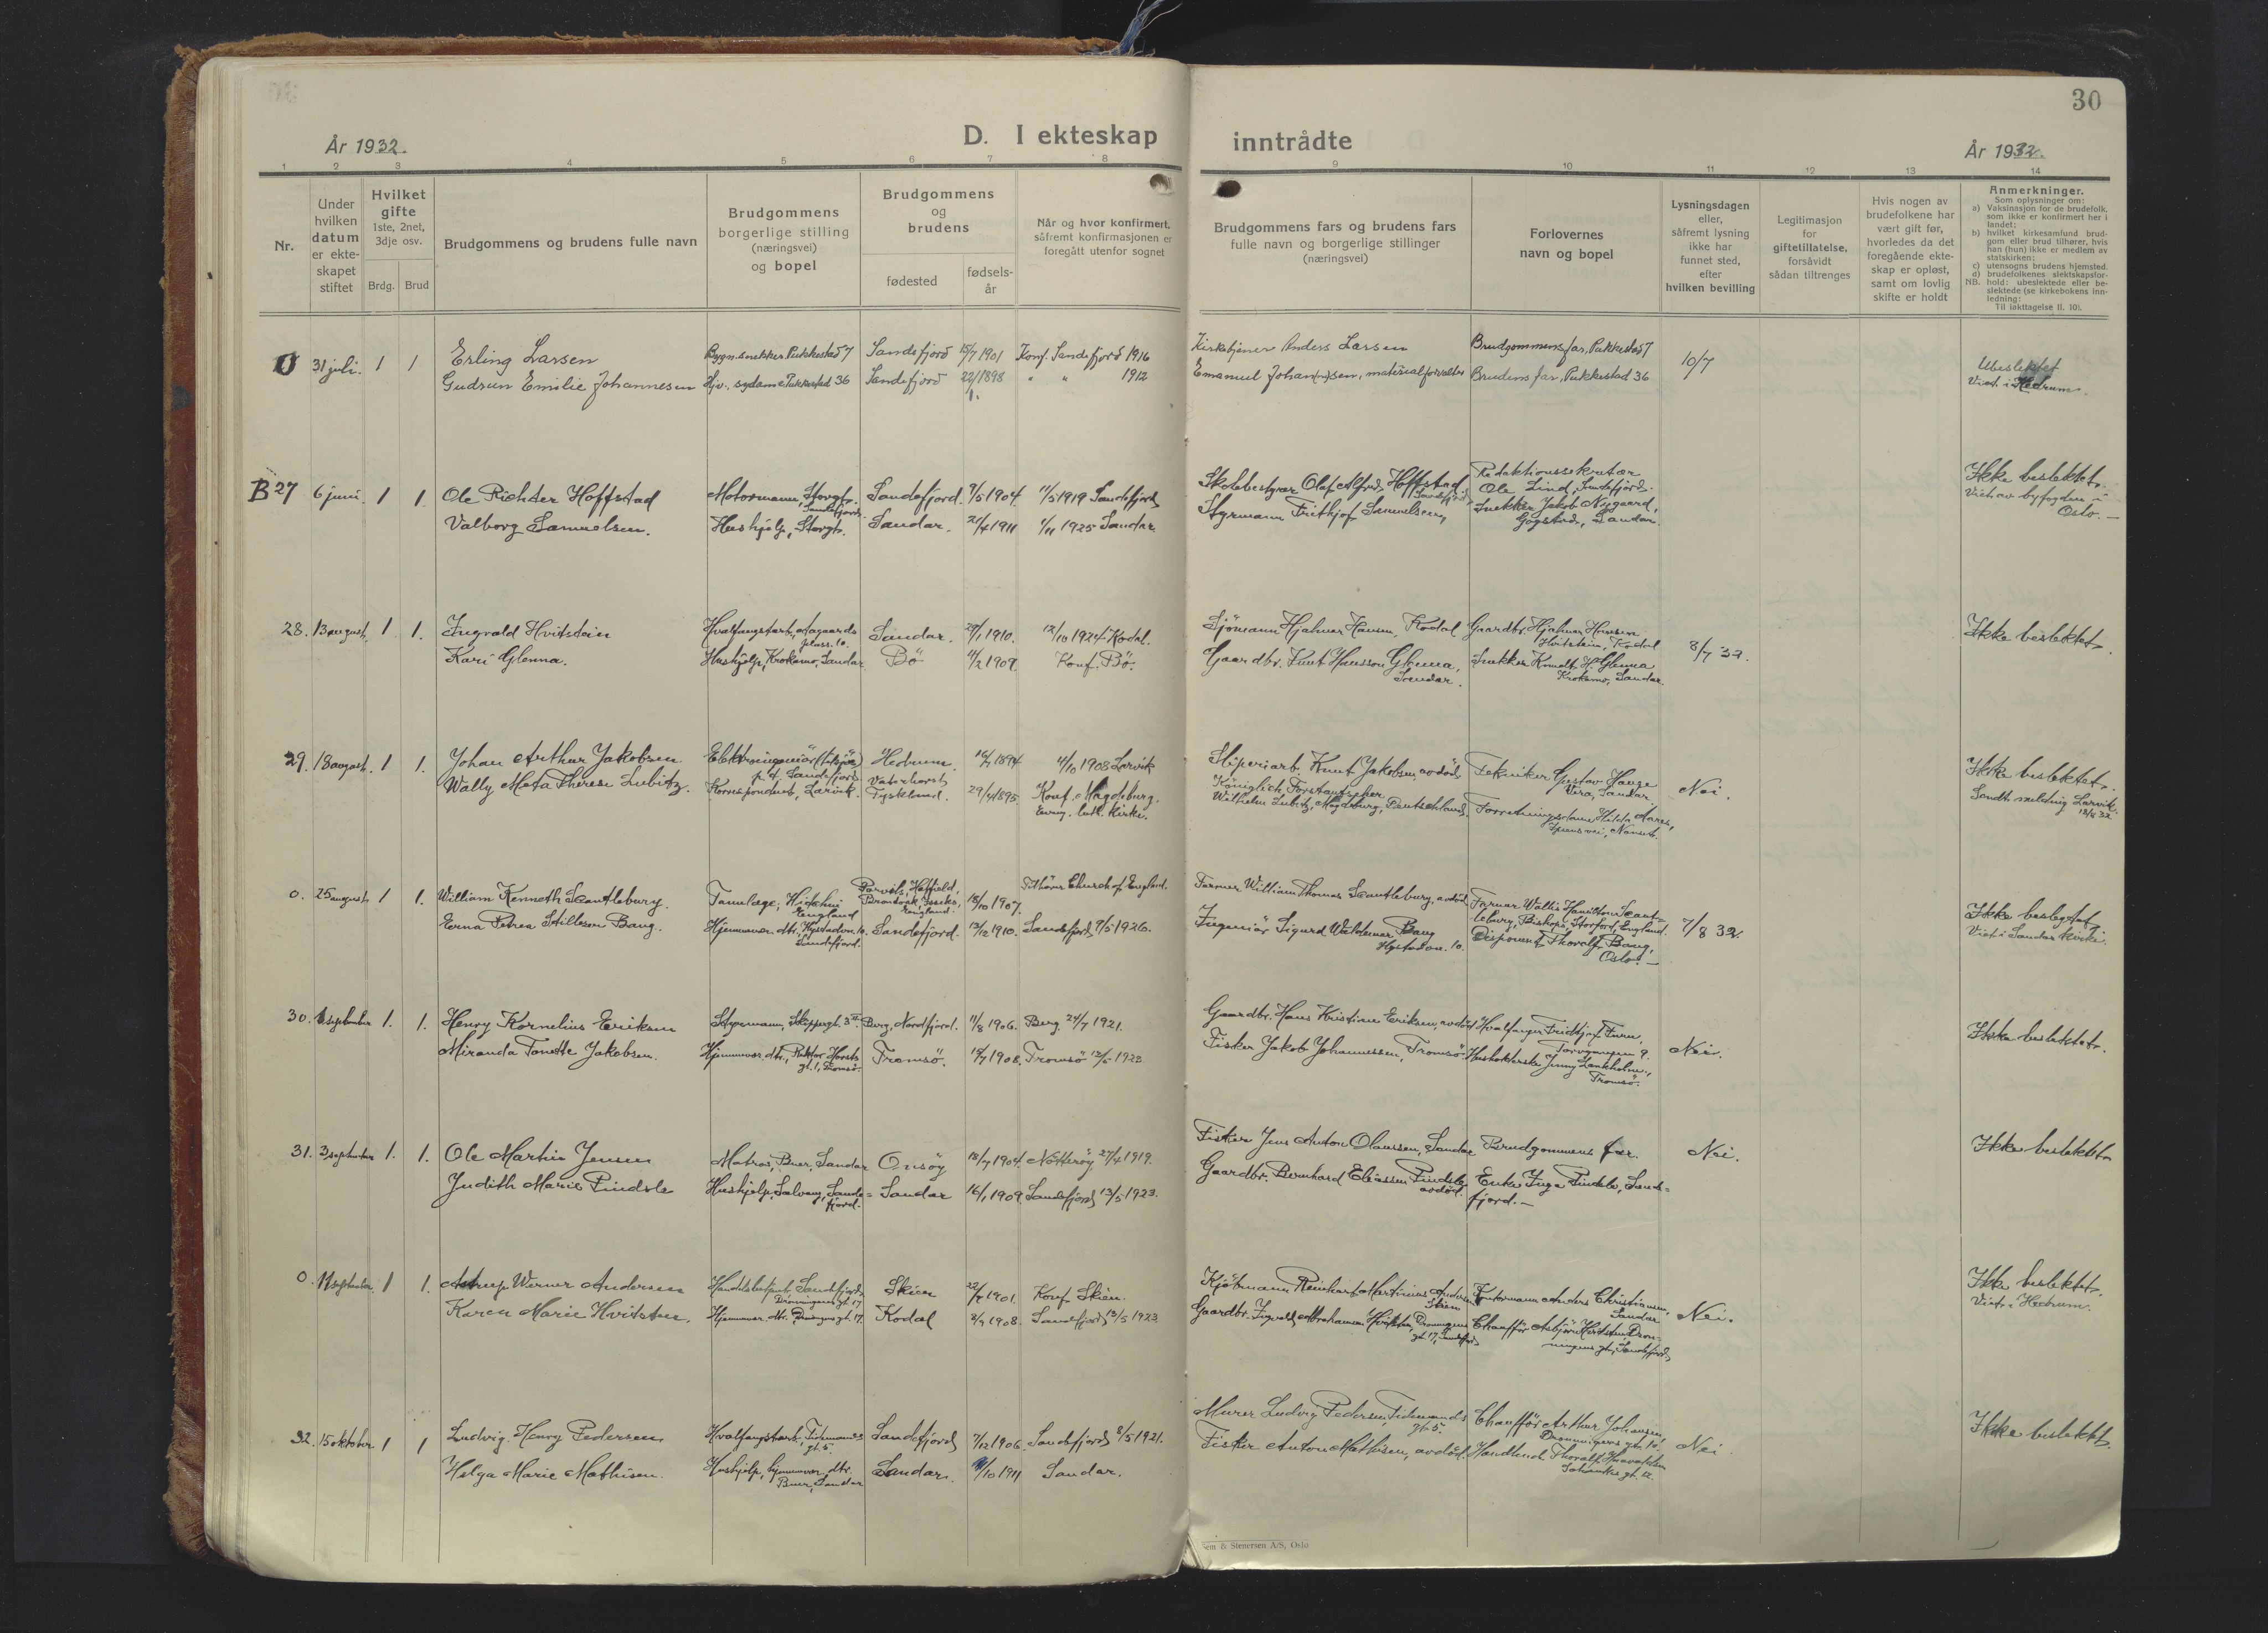 30
År 1932.
D. I ekteskap inntrådte
År 1932.
1 2 3 4 5 6 7 8 9 10 11 12 13 14
Nr.
Under
hvilken
datum
er ekte-
skapet
stiftet
Hvilket
gifte
1ste, 2net,
3dje osv.
Brdg. Brud
Brudgommens og brudens fulle navn
Brudgommens
borgerlige stilling
(næringsvei)
og bopel
Brudgommens
og
brudens
fødested
fødsels-
år
Når og hvor konfirmert,
såfremt konfirmasjonen er
foregått utenfor sognet
Brudgommens fars og brudens fars
fulle navn og borgerlige stillinger
(næringsvei)
Forlovernes
navn og bopel
Lysningsdagen
eller,
såfremt lysning
ikke har
funnet sted,
efter
hvilken bevilling
Legitimasjon
for
giftetillatelse,
forsåvidt
sådan tiltrenges
Hvis nogen av
brudefolkene har
vært gift før,
hvorledes da det
foregående ekte-
skap er opløst,
samt om lovlig
skifte er holdt
Anmerkninger.
Som oplysninger om:
a) Vaksinasjon for de brudefolk,
som ikke er konfirmert her i
landet;
b) hvilket kirkesamfund brud-
gom eller brud tilhører, hvis
han (hun) ikke er medlem av
statskirken;
c) utensogns brudens hjemsted.
d) brudefolkenes slektskapsfor-
NB. hold: ubeslektede eller be-
slektede (se kirkebokens inn-
ledning:
Til iakttagelse II. 10).
0 31 juli. 1 1
Erling Larsen
Gudrun Emilie Johannesen
Bygn.snekker. Pukkestad 7
Hjv. sydame Pukkestad 36
Sandefjord 15/7 1901
Sandefjord 22/1 1898
Konf. Sandefjord 1916
" " 1912
Kirketjener Anders Larsen
Emanuel Johan(n)sen, materialforvalter
Brudgommens far, Pukkestad 7
Brudens far, Pukkestad 36
10/7
Ubeslektet
Viet i Hedrum.
B 27 6 juni. 1 1.
Ole Richter Hoffstad
Valborg Samuelsen.
Motormann, Storgt.
Sandefjord.
Hushjelp, Storgt.
Sandefjord. 7/5 1904.
Sandar. 21/4 1911
11/5 1919 Sandefjord
1/11 1925 Sandar.
Skolebestyrer Olaf Alfred Hoffstad
Sandefjord
Styrmann Frithjof Samuelsen,
Redaktionssekretær
Ole Lind, Sandefjord.
Snekker Jakob Nygaard,
Gogstad, Sandar.
Ikke beslektet.
Viet av byfogden i
Oslo. —
28. 13 august. 1 1.
Ingvald Hvitstein
Kari Glenna.
Hvalfangstarb., Aagaards
pluss. 10.
Hushjelp, Krokemo, Sandar.
Sandar. 27/1 1910.
Bö 4/2 1909.
12/10 1924 Kodal.
Konf. Bö.
Sjömann Hjalmar Hansen, Kodal
Gaardbr. Knut Hansson Glenna,
Sandar.
Gaardbr. Hjalmar Hansen
Hvitstein, Kodal
Snekker H. Glenna
Krokemo, Sandar.
8/7 32.
Ikke beslektet.
29. 18 august. 1 1.
Johan Arthur Jakobsen
Wally Meta Therese Lubitz.
p.t. Sandefjord
Korrespondent, Larvik.
Hedrum.
Tyskland. 29/4 1895.
4/10 1908 Larvik
Konf. Magdeburg.
Evang. luth. kirke.
Sliperiarb. Knut Jakobsen, avdöd
Königlich
Wilhelm Lubitz, Magdeburg, Deutschland.
Tekniker Gustav Hauge
Vera, Sandar
Forretningsdame Hilda Aares,
Nei.
Ikke beslektet.
Sendt melding Larvik
18/8 32
0. 25 august. 1 1.
William Kenneth Scantlebury.
Erna Petrea Stillesen Bang.
Tannlæge, Hitchin
England
Hjemmever. dtr., Hystadvn. 10.
Sandefjord.
England. 18/10 1907.
Sandefjord. 13/12 1910.
Tilhörer Church of England.
Sandefjord 9/5 1926.
Farmer William Thomas Scantlebury, avdöd
Ingeniör Sigurd Waldemar Bang
Hystadvn. 10.
Farmer Wallis Hamilton Scant-
lebury, Bishops, Stortford, England.
Disponent Thoralf Bang,
Oslo. —
7/8 32.
Ikke beslegtet,
Viet i Sandar kirke.
30. 1 september 1. 1.
Henry Kornelius Eriksen
Miranda Tonette Jakobsen.
Styrmann, Skippergt. 3
Hjemmevær. dtr., Rektor Horsts
gt. 1, Tromsö.
Berg, Nordfjord. 11/8 1906.
Tromsö. 19/7 1908.
Berg 24/7 1921.
Tromsö 13/5 1923
Gaardbr. Hans Kristian Eriksen, avdöd
Fisker Jakob Johannessen, Tromsö.
Hvalfanger Fridtjof Furu,
Torvgangen 9.
Husholderske Jenny Lankholm.,
Tromsö.
Nei.
Ikke beslektet.
31. 3 september 1. 1.
Ole Martin Jensen
Judith Marie Pindsle
Matros, Buer, Sandar
Hushjelp, Salveng, Sande=
fjord.
Onsöy 18/7 1904.
Sandar 16/1 1909.
Nötteröy 27/4 1919.
Sandefjord 13/5 1923.
Fisker Jens Anton Olaussen, Sandar
Gaardbr. Bernhard Eliassen Pindsle,
avdöd.
Brudgommens far.
Enke Inga Pindsle, Sande=
fjord. —
Nei.
Ikke beslektet
0. 11 september. 1 1.
Astrup Werner Andersen
Karen Marie Hvitsten.
Handelsbetjent, Sandefjord,
Dronningens gt. 17
Hjemmevær. dtr. Dronningens gt. 17.
Skien 1901.
Kodal 1908.
Konf. Skien.
Sandefjord 13/5 1923.
Kjötmann Reinhart Martinius Andersen
Skien
Gaardbr. Ingvald Abrahamsen Hvitsten, Dronningens
gt. 17, Sandefjord
Kontormann Anders Christiansen,
Sandar.
Chauffför Asbjörn Hvitsten, Dron-
ningens gt., Sandefjord
Nei.
Ikke beslektet.
Viet i Hedrum.
32. 15 oktober. 1 1
Ludvig Henry Pedersen
Helga Marie Mathisen.
Hvalfangstarb. Tidemands
gt. 5.
Hushjelp, hjemmevær. dtr.
Buer, Sandar
Sandefjord 7/12 1906.
Sandar. /10 1911
Sandefjord 8/5 1921.
Sandar.
Murer Ludvig Pedersen, Tidemands
gt. 5.
Fisker Anton Mathisen, avdöd.
Chauffför Arthur Johansen,
Dronningens gt. 10.
Handlende Thoralf
gt. 12.
Nei
Ikke beslektet.
Sem & Stenersen A/S, Oslo